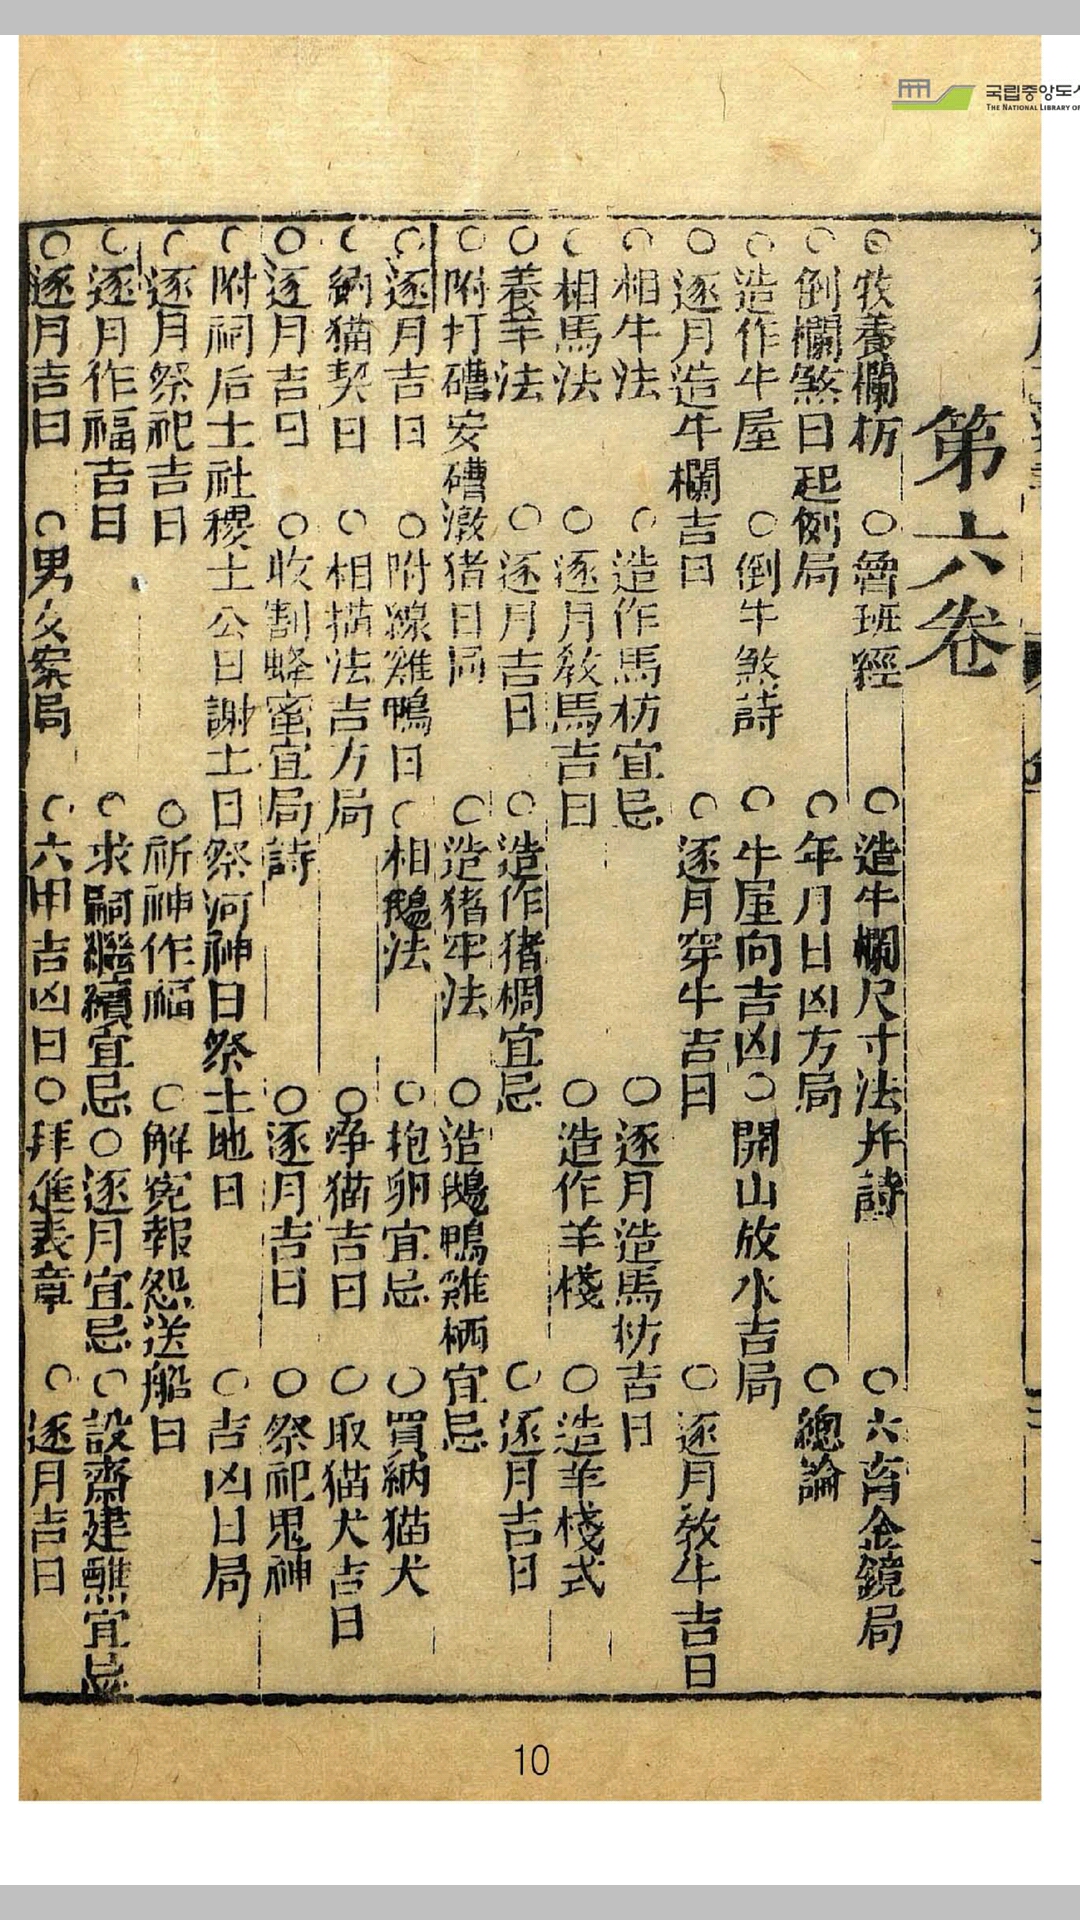 국립중앙도
THE NATIONAL LIBRARY OF
第六卷
○牧養欄枋○魯班經○造牛欄尺寸法并詩○六畜金鏡局
○倒欄煞日起例局○年月日凶方局○總論
○造作牛屋○倒牛煞詩○牛屋向吉凶○開山放水吉局
○逐月造牛欄吉日○逐月穿牛吉日○逐月教牛吉日
○相牛法○造作馬枋宜忌○逐月造馬枋吉日
○相馬法○逐月教馬吉日○造作羊棧○造羊棧式
○養羊法○逐月吉日○造作猪椆宜忌○逐月吉日
○附打磄安磄潡猪日局○造猪牢法○造鵝鴨雞栖宜忌
○逐月吉日○附線雞鴨日○相鵝法○抱卵宜忌○買納猫犬
○納猫契日○相猫法吉方局○净猫吉日○取猫犬吉日
○逐月吉日○收割蜂蜜宜局詩○逐月吉日○祭祀鬼神
○附祠后土社稷土公日謝土日祭河神日祭土地日○吉凶日局
○逐月祭祀吉日○祈神作福○解寃報怨送船日
○逐月作福吉日○求嗣繼續宜忌○逐月宜忌○設齋建醮宜忌
○逐月吉日○男女案局○六甲吉凶日○拜進表章○逐月吉日
10